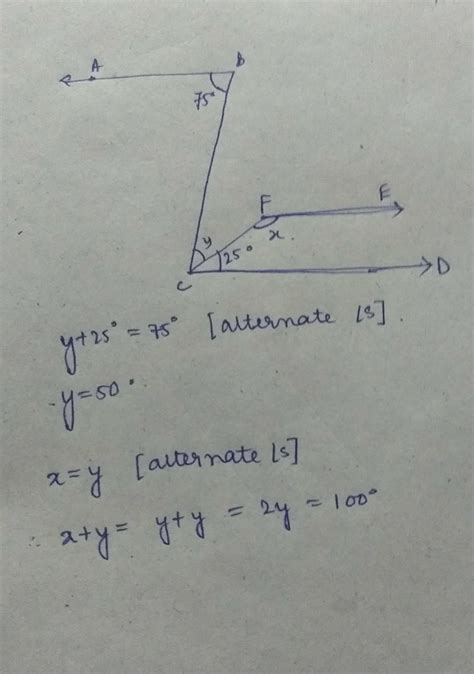 A B
75°
F E
x.
y 25°
C D
y+25° = 75° [alternate ∠s].
y=50°
x=y [alternate ∠s]
∴ x+y= y+y = 2y = 100°